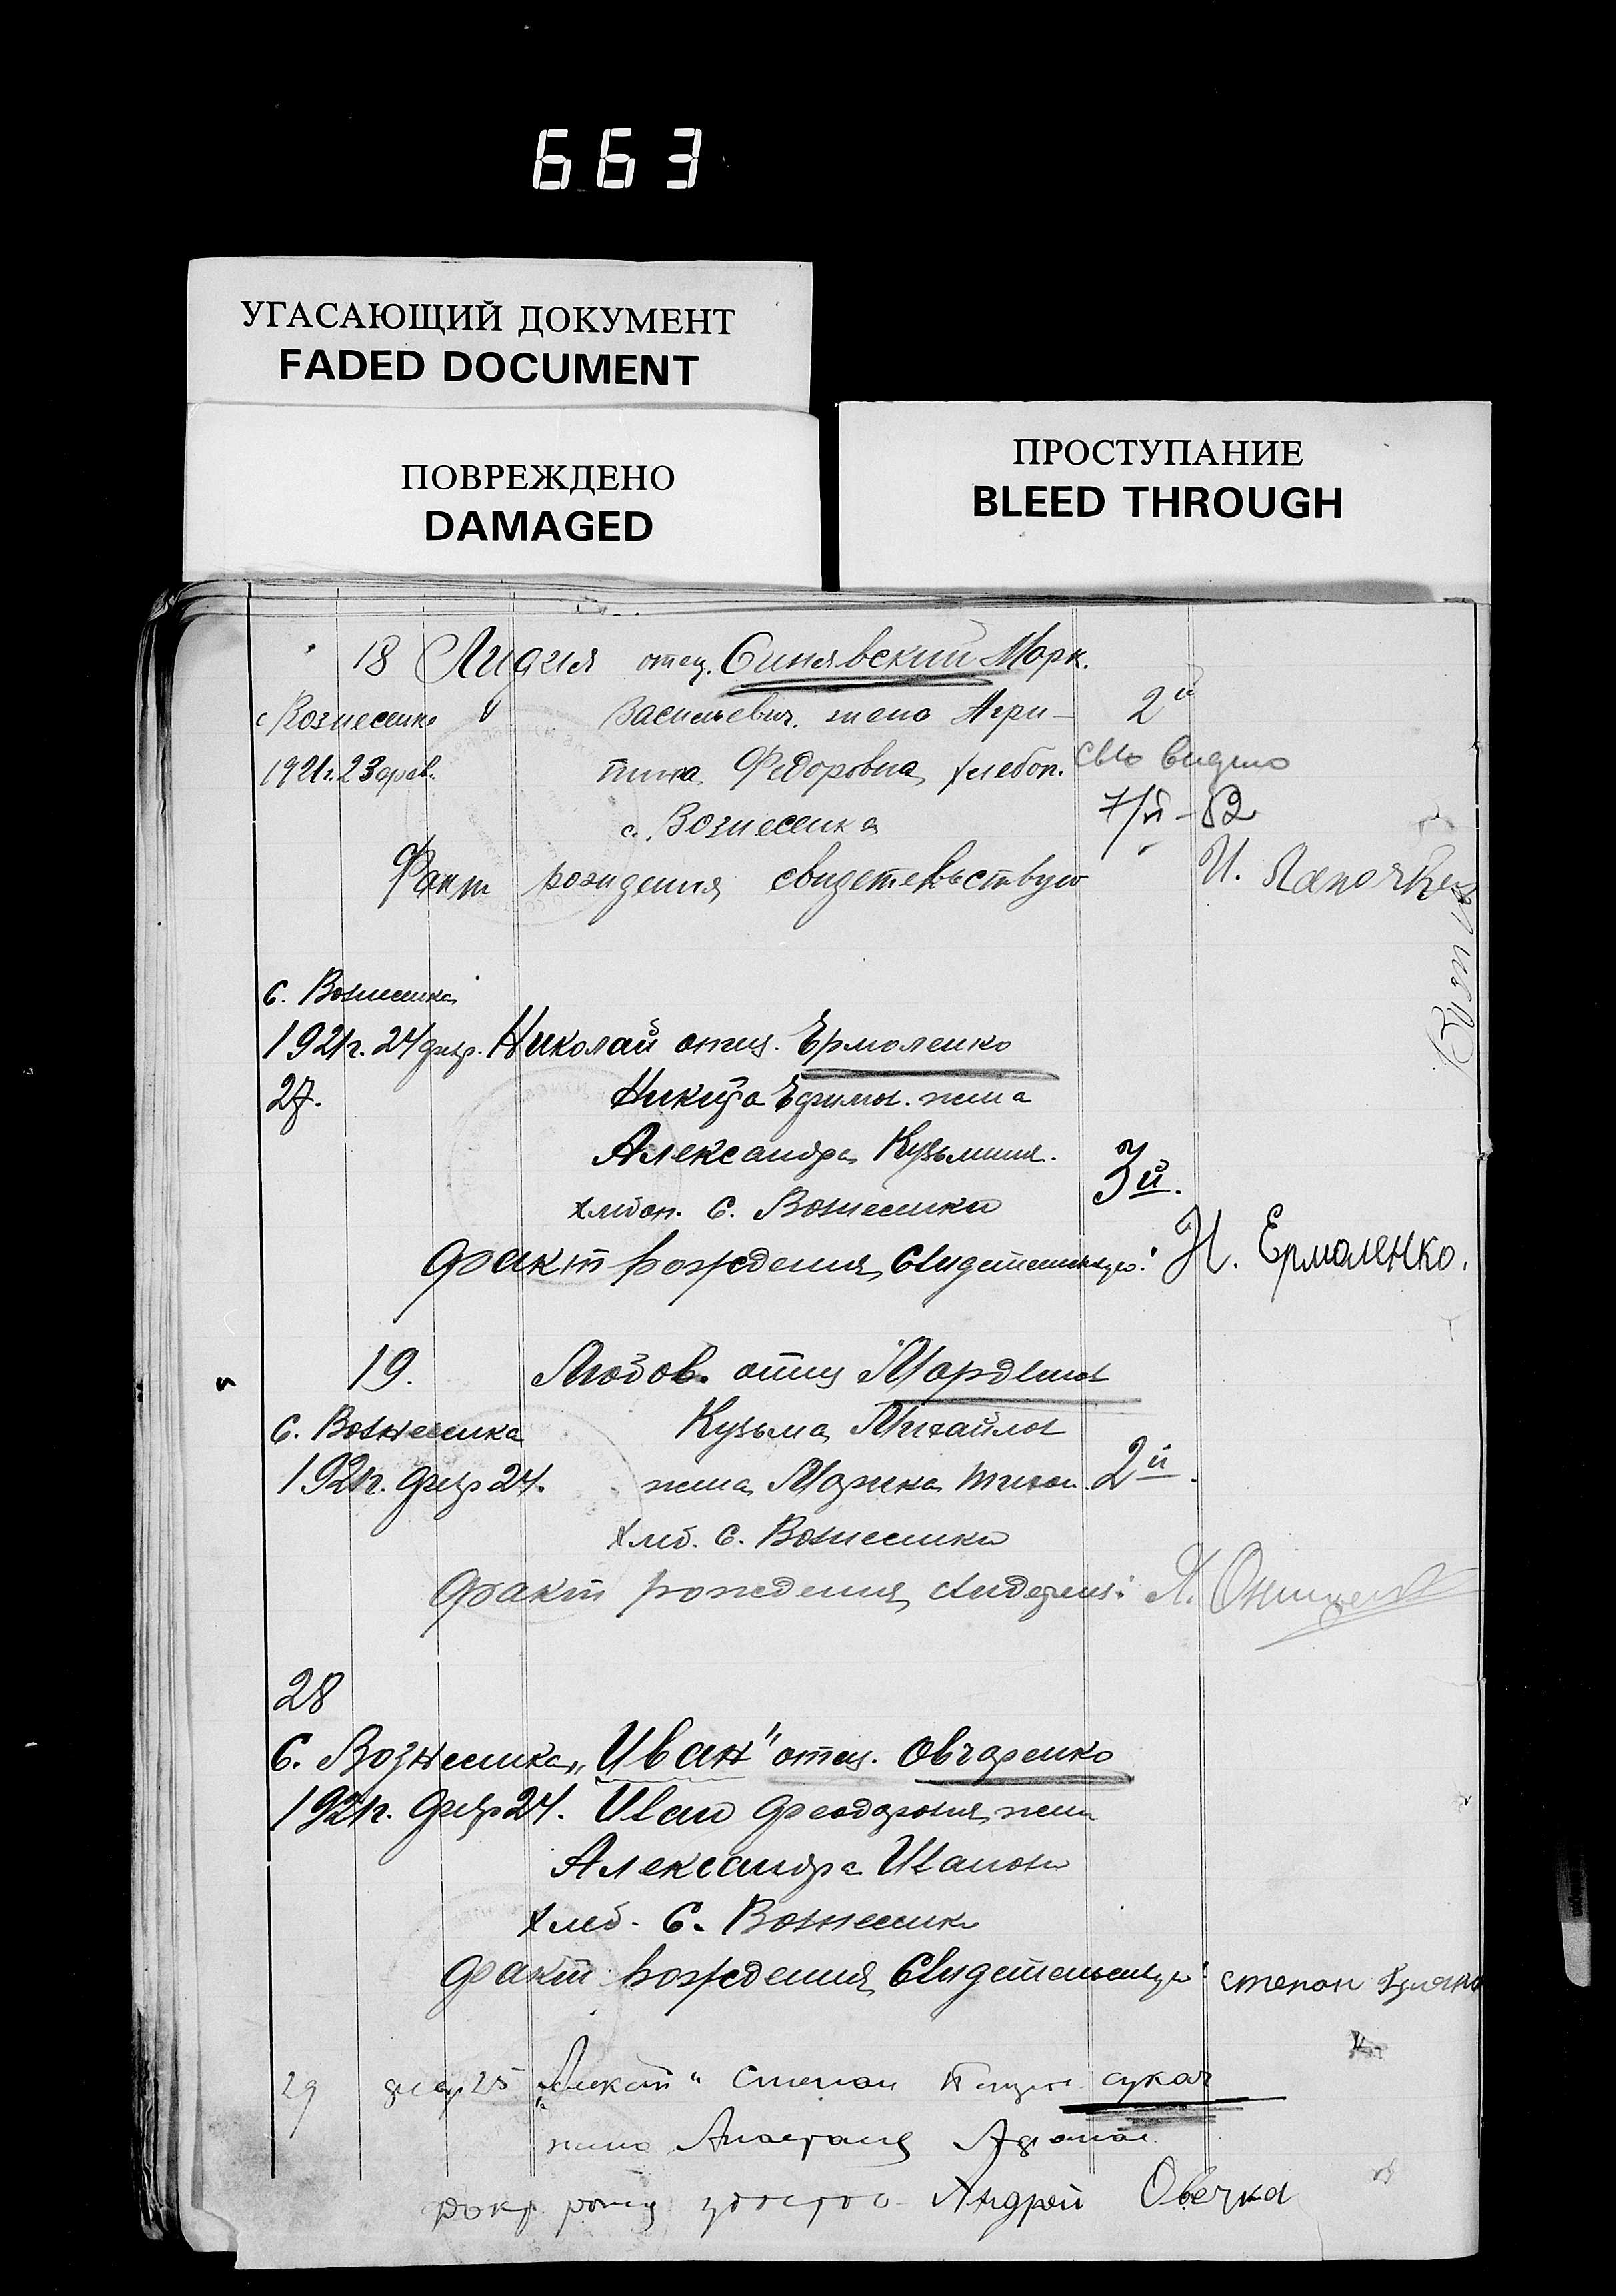 663
УГАСАЮЩИЙ ДОКУМЕНТ
FADED DOCUMENT
ПОВРЕЖДЕНО
DAMAGED
ПРОСТУПАНИЕ
BLEED THROUGH
18 Лидия отец. Синявский Марк.
с Вознесенке Васильевич. жена Агри- 2й
1921г. 23 февр. пина Федоровна, хлебоп. св-во видано
с. Вознесенка 7/VI-52
Факт рождения свидетельствую И.
С. Вознесенка
1921г. 24 февр. Николай отец. Ермоленко
27. Никита Ефимов. жена
Александра Кузьминич. 3й.
хлебоп. С. Вознесенки
Факт рождения свидетельствую: Н. Ермоленко.
19. Любов. отец Мардинов
С. Вознесенка Кузьма Михайлов
1921г. февр 24. жена Марика Тихон. 2й.
Хлеб. С. Вознесенки
Факт рождения свидетел: Л.
28
С. Вознесенка „Иван" отец. Овчаренко
1921г. февр 24. Иван Феодоровия, жена
Александра Иванов
Хлеб. С. Вознесенки
Факт рождения свидетельствую: степан
29 февр 25 „Алексей" Степан сукач
жена Анастасия
Факт рожд Андрей Овечка